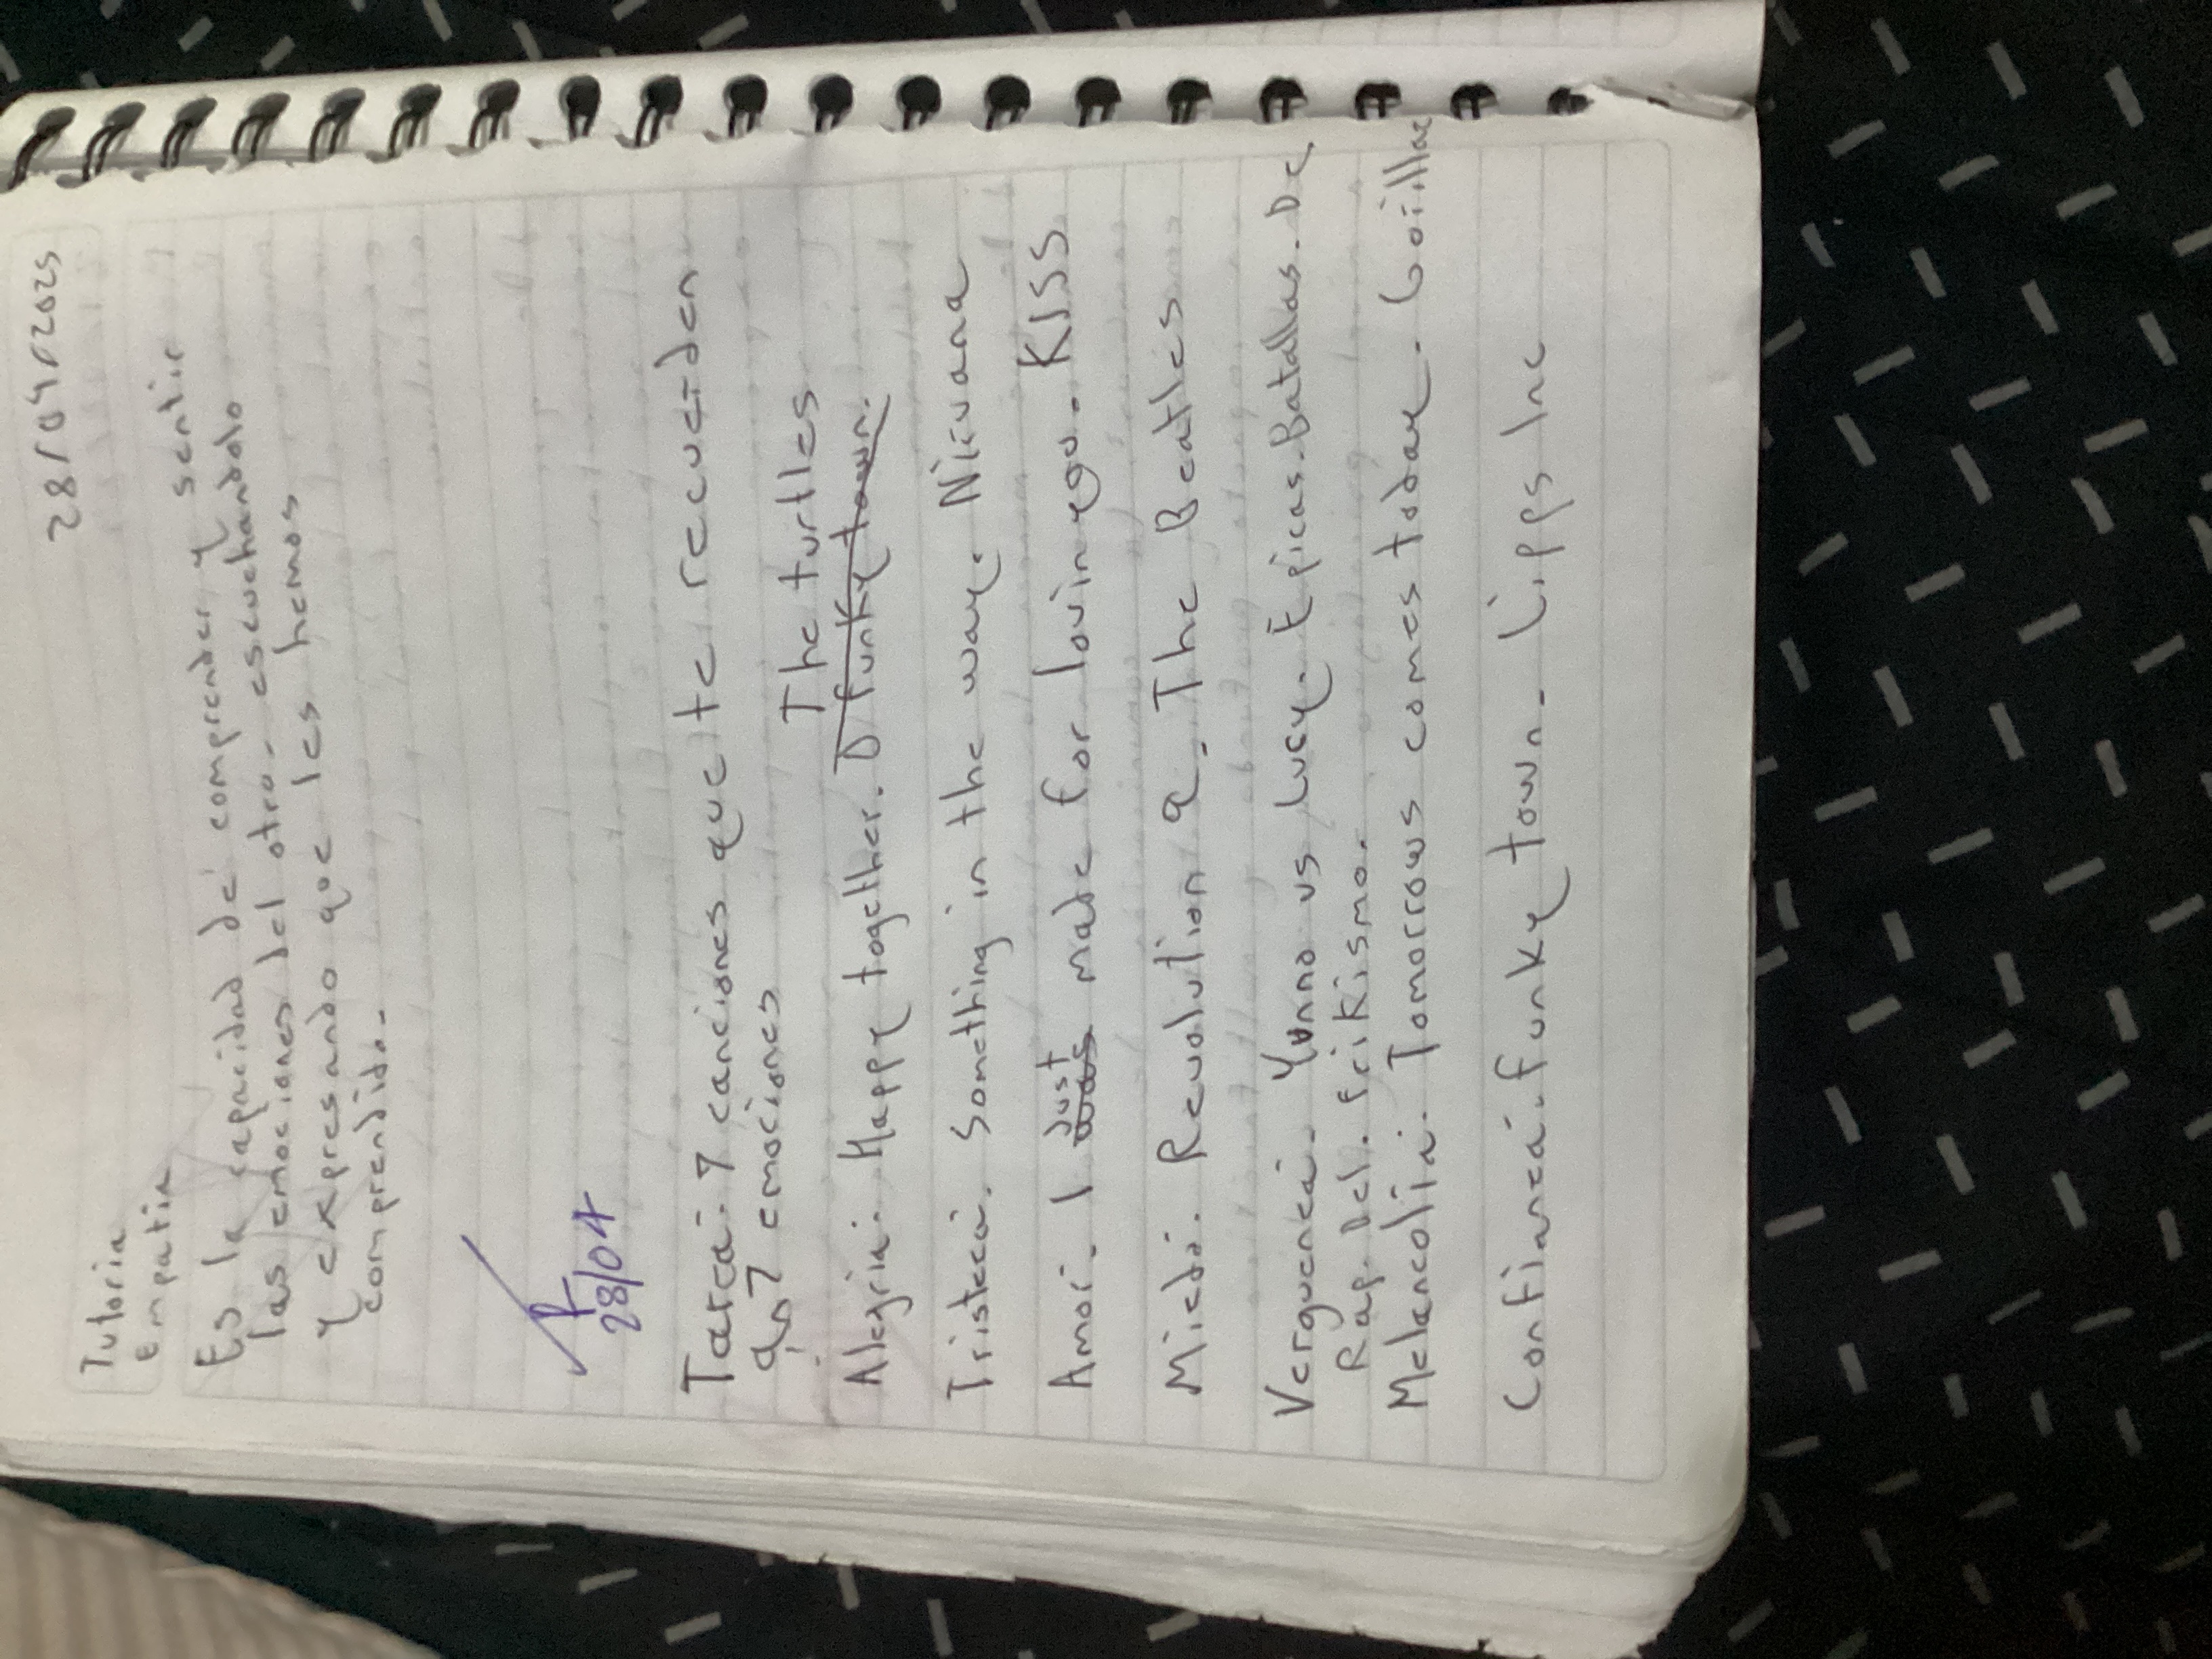 28/04/2025
Tutoria
Empatia
Es la capacidad de comprender y sentir
las emociones del otro, escuchandolo
y expresando que les hemos
comprendido.
28/04
Tarea: 7 canciones que te recuerden
a 7 emociones
The turtles
Alegria: Happy together. D funky town.
Tristeza. Something in the way. Nirvana
Just
Amor. I was made for lovin you. KISS
Miedo. Revolution 9. The Beatles
Verguenza. Yunno vs Lucy. Epicas. Batallas. De
Rap. Del. Frikismo.
Melancolia. Tomorrows comes today. Gorillaz
Confianza. Funky town. Lipps Inc